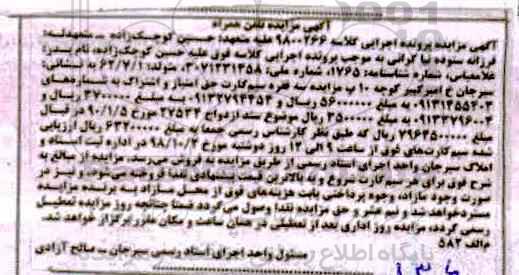 آگهی مزایده تلفن همراه
آگهی مزایده پرونده اجرایی کلاسه ۹۸۰۰۲۶۶ علیه متعهد: حسین کوچک‌زاده متعهدله:
فرزانه ستوده نیا کرانی به موجب پرونده اجرایی کلاسه فوق علیه حسن کوچک‌زاده، نام پدر:
غلامعباس، شماره شناسنامه: ۱۷۶۵، شماره ملی: ۳۰۷۱۲۳۱۴۵۸، متولد: ۶۲/۷/۱ به نشانی:
سیرجان خ امیرکبیر کوچه ۱۰ پ مزایده سه فقره سیم‌کارت حق امتیاز و اشتراک به شماره‌های
به مبلغ ۵۶۰۰۰۰۰ ریال و ۰۹۱۳۲۷۹۴۴۵۳ به مبلغ ۳۷۰۰۰۰۰ ریال و
به مبلغ ۳۵۰۰۰۰۰ ریال موضوع سند ازدواج ۲۷۵۳۴ مورخ ۹۰/۱/۵ در قبال
مبلغ ۷۹۶۳۵۰۰۰۰ ریال که طبق نظر کارشناس رسمی جمعا به مبلغ ریال ارزیابی
شده سیم‌کارت‌های فوق از ساعت ۹ الی ۱۲ روز دوشنبه مورخ ۹۸/۱۰/۲ در اداره ثبت اسناد و
املاک سیرجان واحد اجرای اسناد رسمی از طریق مزایده به فروش می‌رسد. مزایده از مبالغ به
شرح فوق برای هر سیم کارت شروع و به بالاترین قیمت پیشنهادی نقدا فروخته می‌شود. و نیز در
صورت وجود مازاد، وجوه پرداختی بابت هزینه‌های فوق از محل مازاد به برنده مزایده
مسترد خواهد شد و نیم عشر و حق مزایده نقدا وصول می‌گردد ضمنا چنانچه روز مزایده تعطیل
رسمی گردد، مزایده روز اداری بعد از تعطیلی در همان ساعت و مکان مقرر برگزار خواهد شد.
م الف ۵۸۲
مسئول واحد اجرای اسناد رسمی سیرجان ـ صالح آزادی